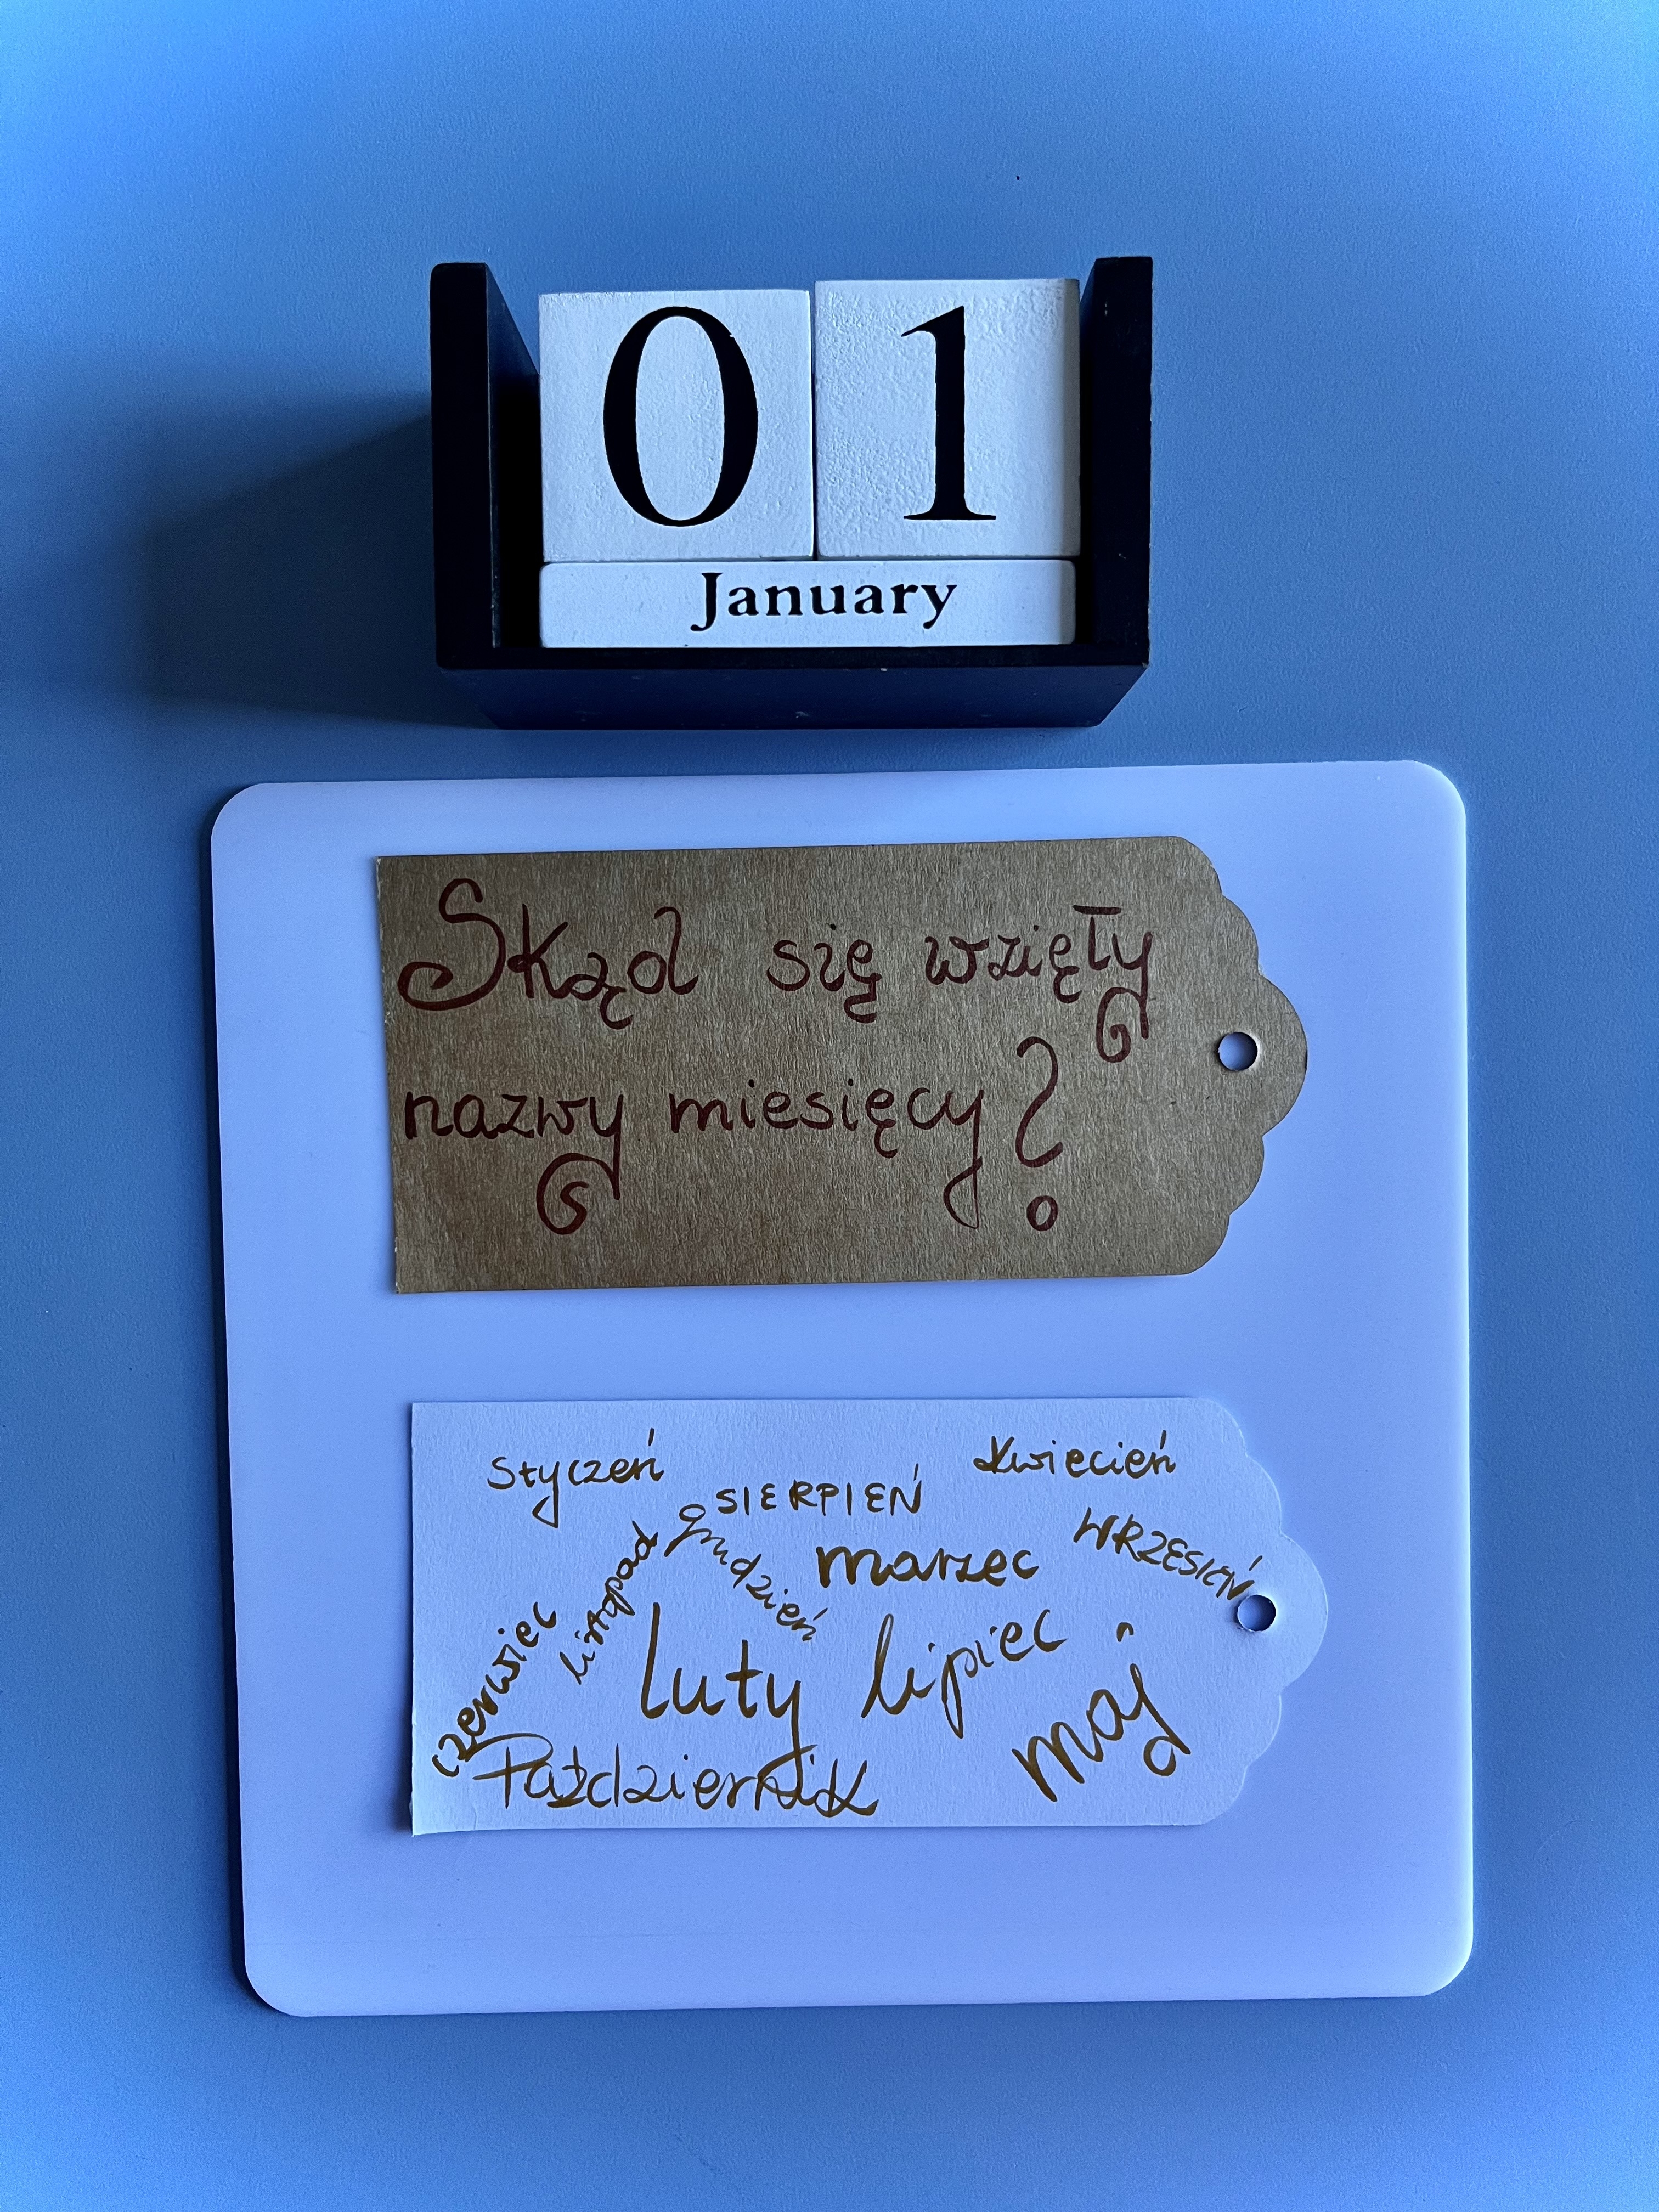 01
January
Skąd się wzięły
nazwy miesięcy?
styczeń
SIERPIEŃ
kwiecień
grudzień
listopad
marzec
WRZESIEŃ
czerwiec
luty
lipiec
maj
Październik